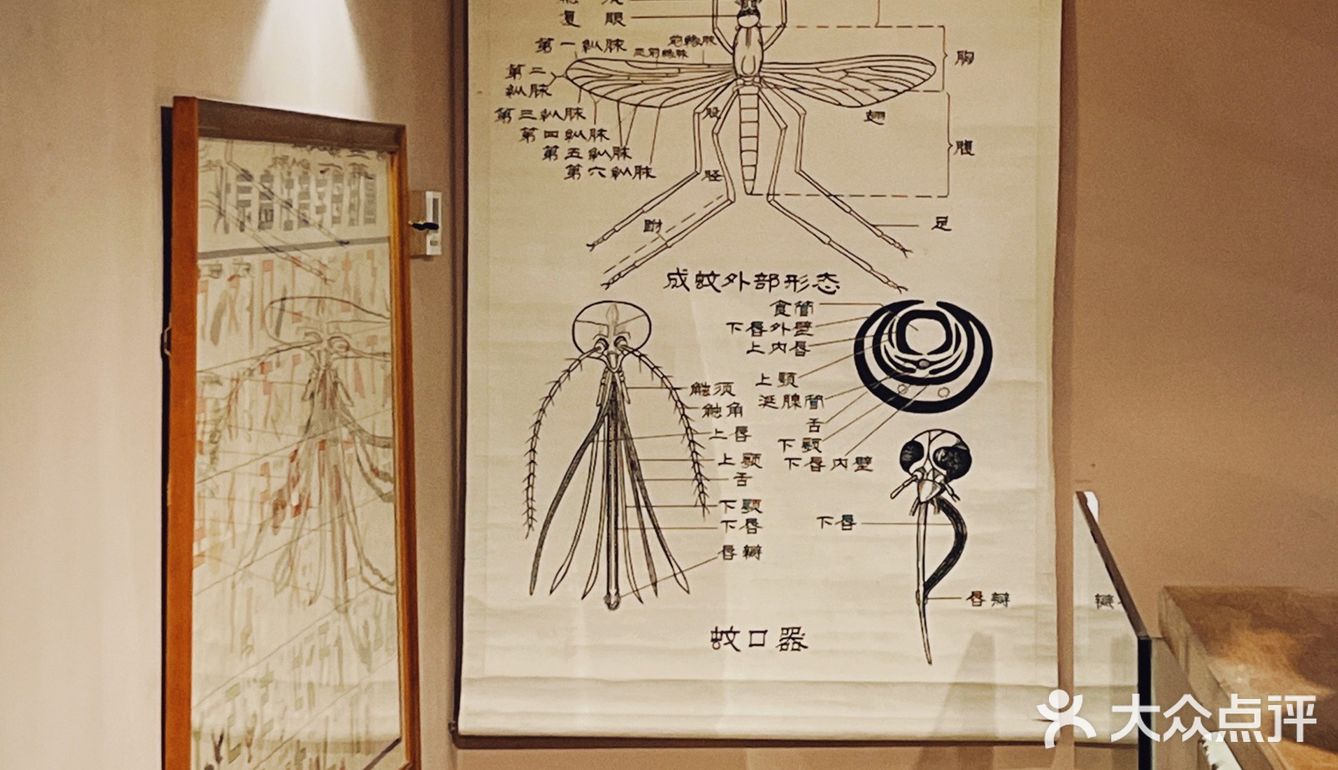 复眼
第一纵脉
前缘脉
亚前缘脉
胸
第二
纵脉
第三纵脉
股
翅
第四纵脉
腹
第五纵脉
第六纵脉
胫
跗
足
成蚊外部形态
食管
下唇外壁
上内唇
上颚
涎腺管
舌
下颚
下唇内壁
触须
触角
上唇
上颚
舌
下颚
下唇
唇瓣
下唇
唇瓣
蚊口器
大众点评